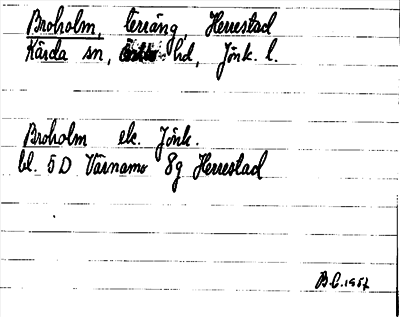 Broholm, terräng, Herrestad
Kärda sn, hd, Jönk. l.
Broholm ek. Jönk.
bl. 5D Värnamo 8g Herrestad
B.C. 1957